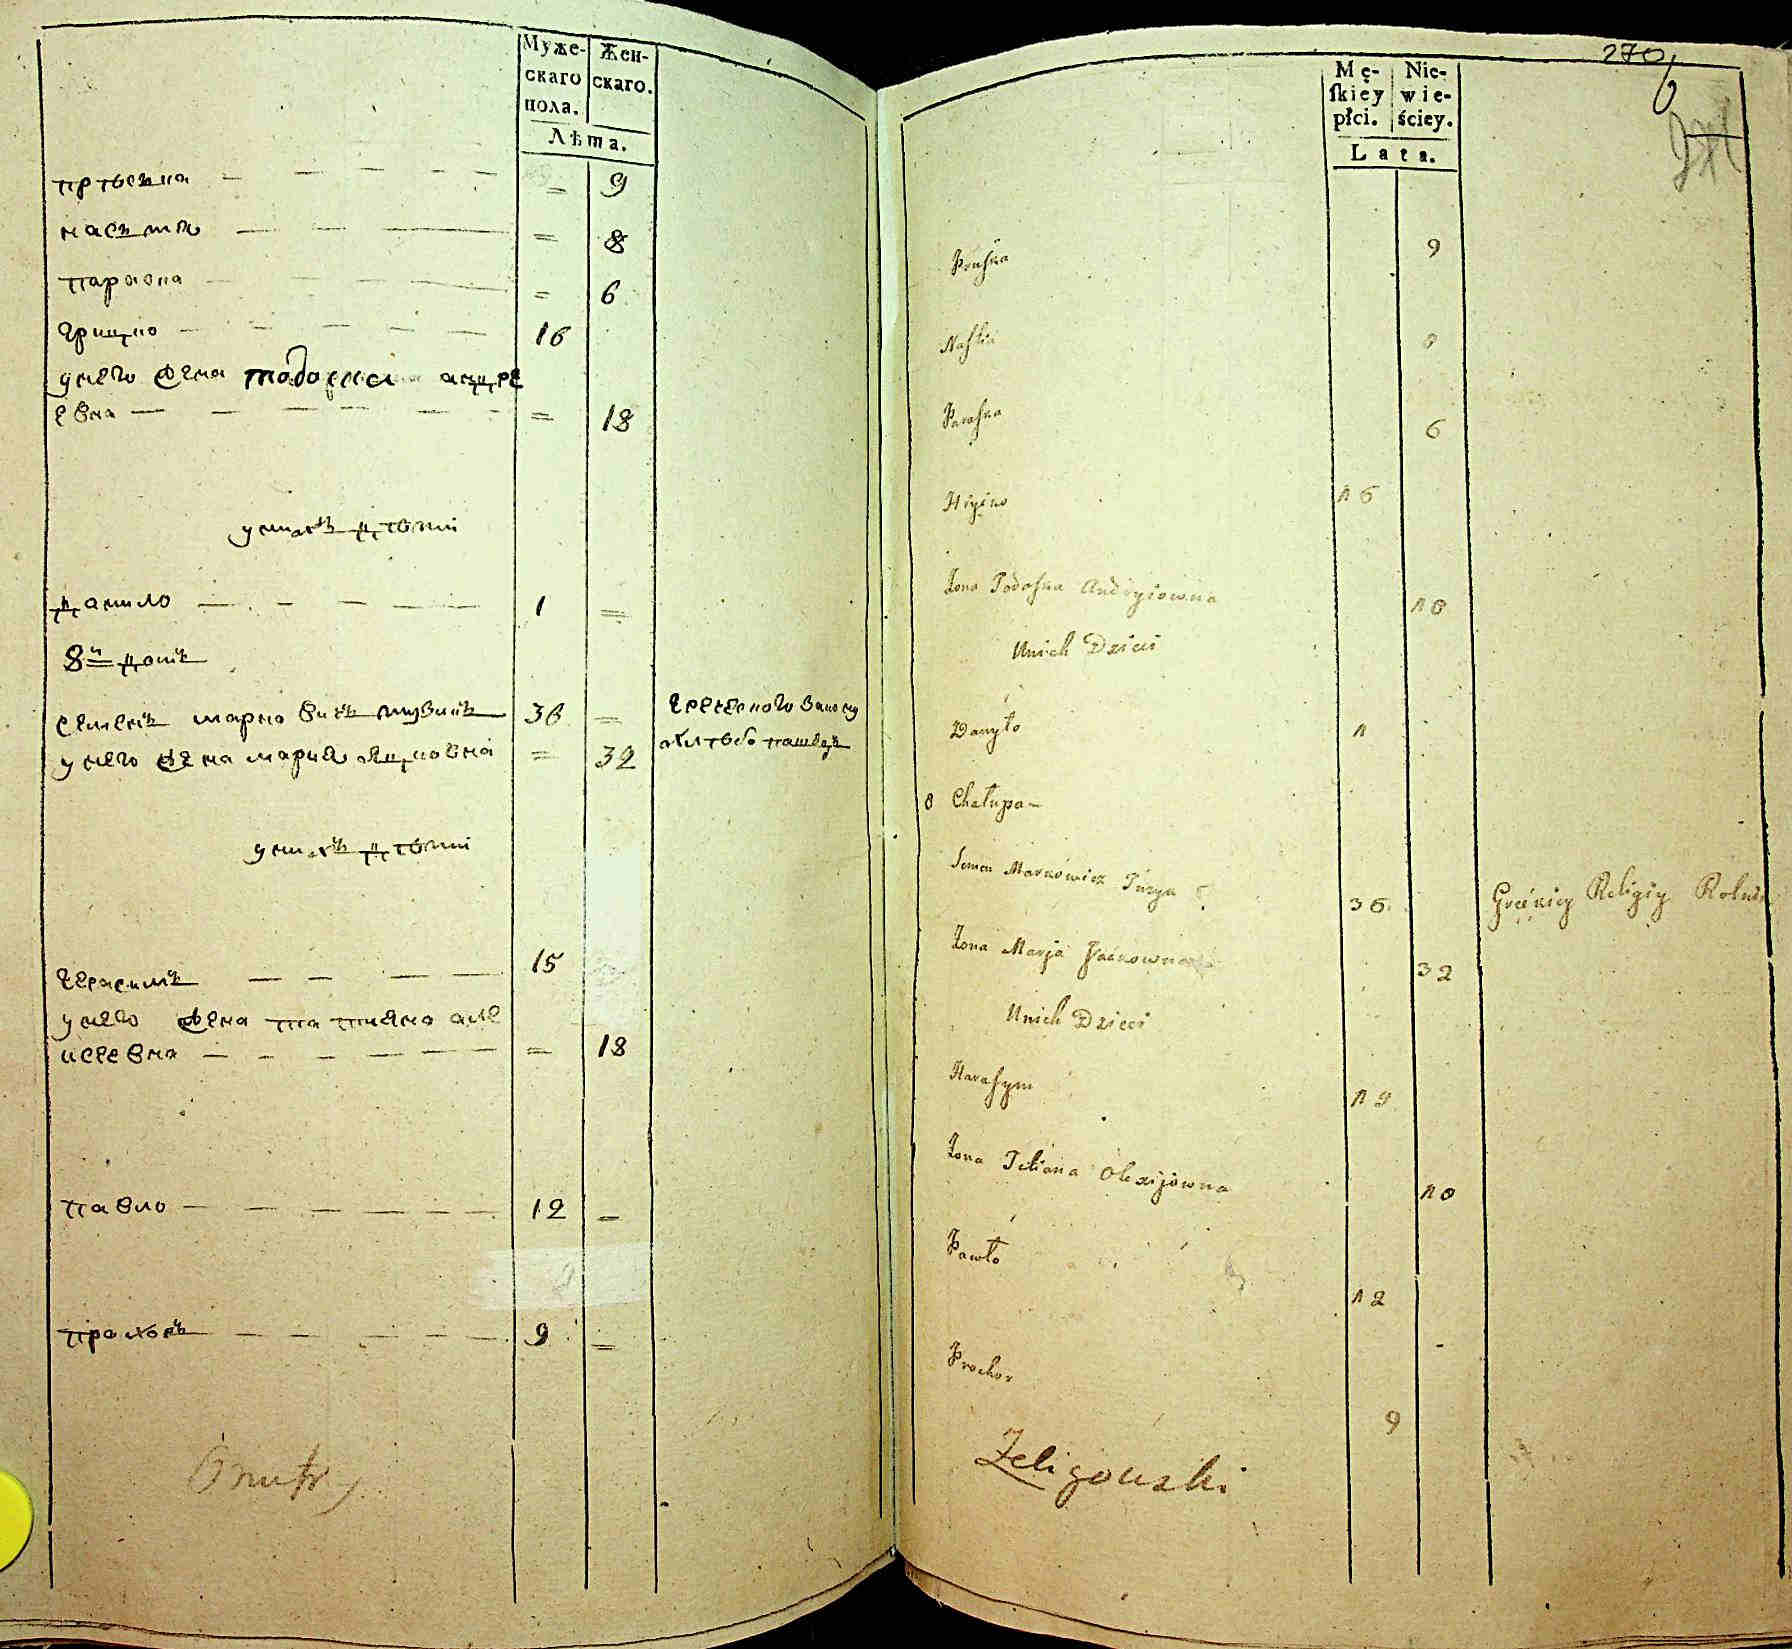 Муже-
скаго
пола.
Жен-
скаго.
Лѣта.
= 9
= 8
параска = 6
грицко 16
унего жена тодоска андре
евна = 18
унихъ дѣти
данило 1 =
8й домъ
семенъ марко вичъ 36 =
унего жена мария яцковна = 32
унихъ дѣти
герасимъ 15
унего жена татияна але
ксеевна = 18
павло 12 =
прохоръ 9 =
270
Mę-
ſkiey
płci.
Nie-
wie-
ściey.
Lata.
9
Naſtia 8
Paraſka 6
Hryćko 16
Żona Todoſka Andryiowna 18
Unich Dzieci
Danyło 1
8 Chałupa
Semen Markowicz 36 Greckiey Religiy
Żona Marja Jackowna 32
Unich Dzieci
Haraſym 19
Żona Tetiana Olexijowna 18
Pawło 12
Prochor 9
Żeligowski